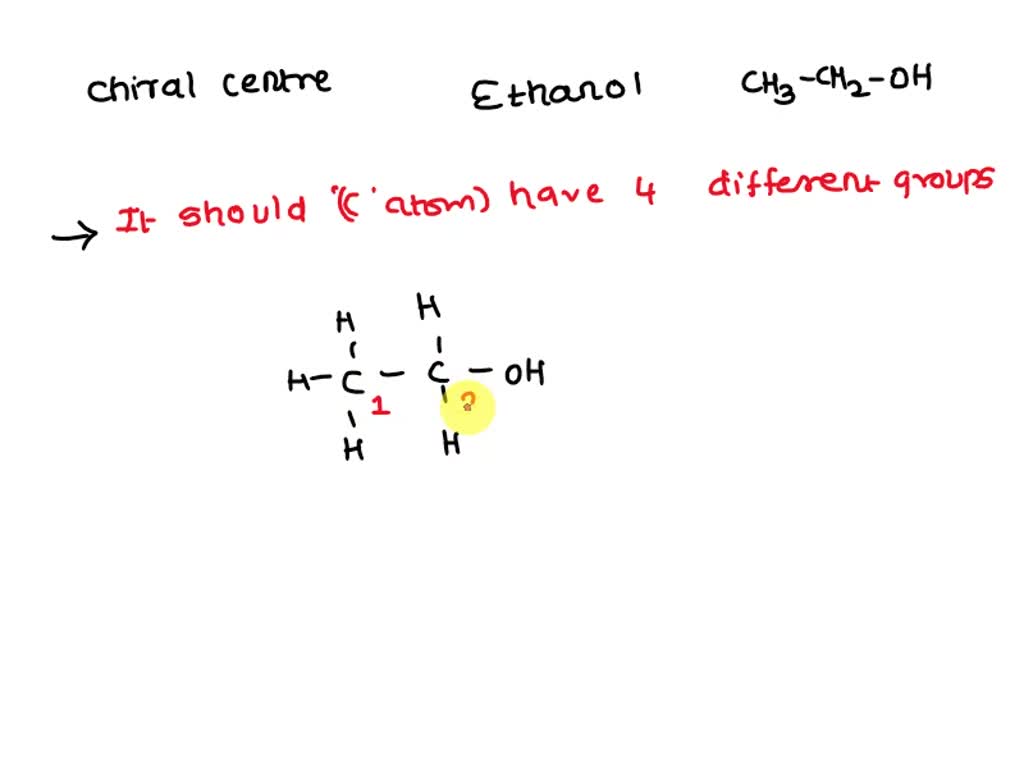 Chiral centre Ethanol CH3-CH2-OH
→ It should ('C' atom) have 4 different groups
H H
H-C-C-OH
1 2
H H